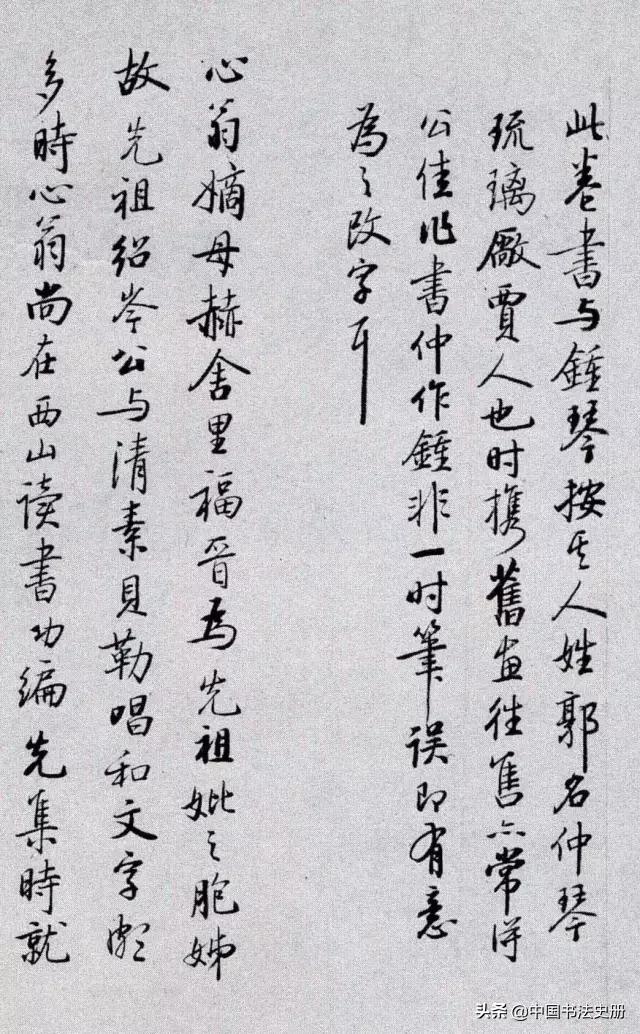 此卷書与鍾琴按其人姓郭名仲琴
琉璃廠賈人也时携舊畫往售亦常得
公佳作書仲作鍾非一时筆误即有意
為之改字耳
心翁嫡母赫舍里福晋為先祖妣之胞姊
故先祖绍岑公与清素貝勒唱和文字頗
多時心翁尚在西山读書功编先集時就
头条@中国书法史册